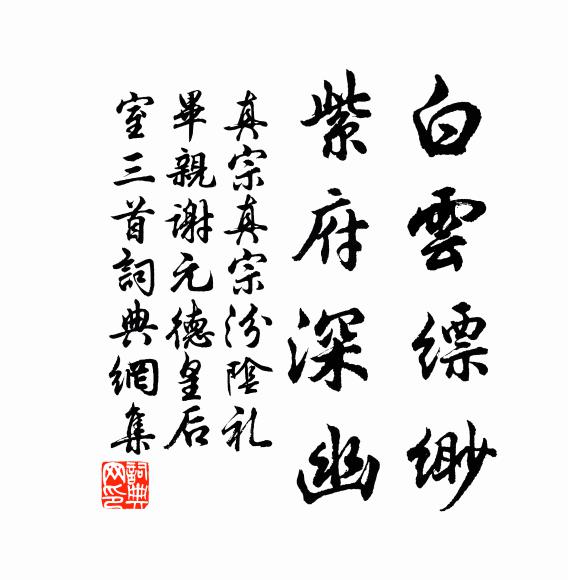 白雲縹緲
紫府深幽
真宗真宗汾陰礼
畢親謝元德皇后
室三首詞典網集
詞典网印